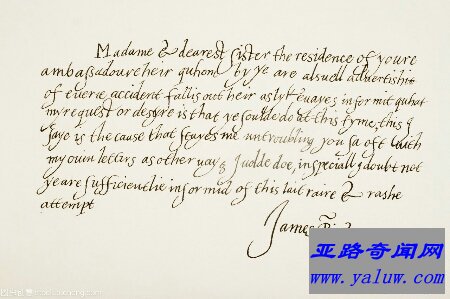 Madame & dearest sister the residence of youre
ambassadoure heir quhom by ye are alsueil advertishit
of everie accident fallis out heir as lykewayes informit quhat
my request or desyre is that ye soulde do at this tyme, this I
saye is the cause that stayes me untroubling you sa oft with
my ouin lettirs as otheruayes I uolde doe, in speciall I doubt not
ye are sufficientlie informid of this lait raire & rashe
attempt
James R
亚路奇闻网
www.yaluw.com